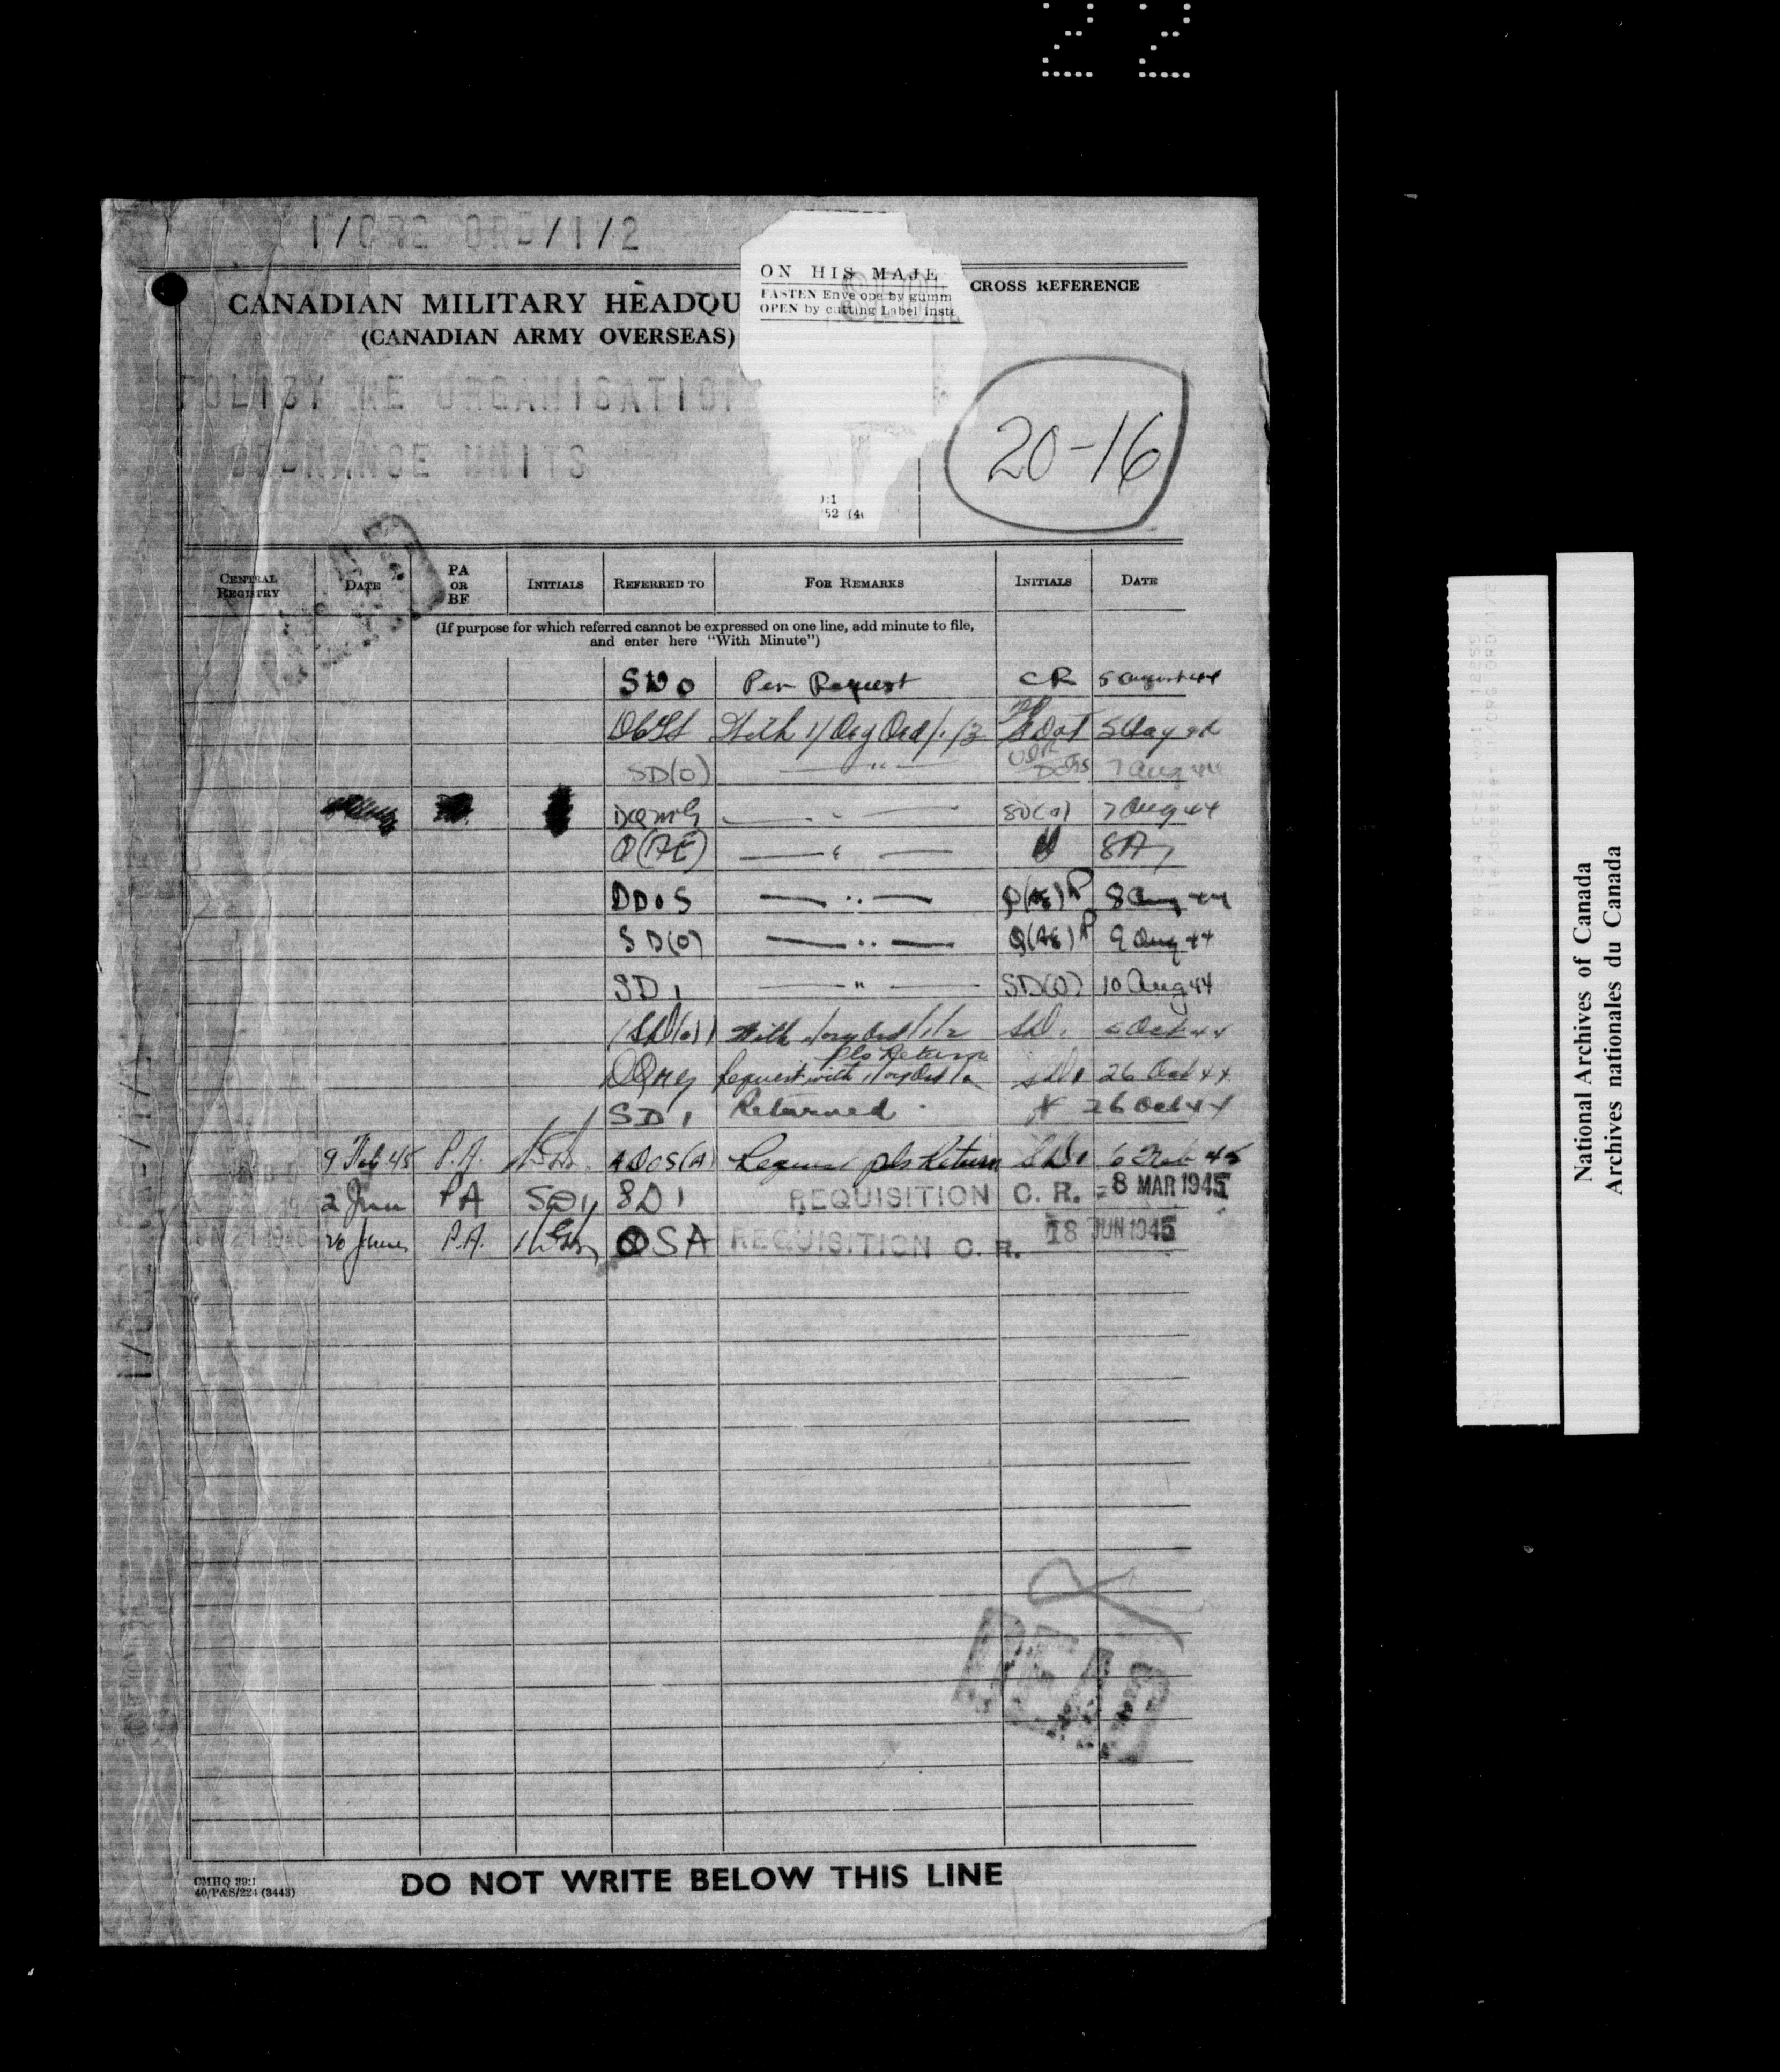 22
1/ORG ORD/1/2
ON HIS MAJE
FASTEN Envelope by gumm
OPEN by cutting Label inste
CROSS REFERENCE
CANADIAN MILITARY HEADQU
(CANADIAN ARMY OVERSEAS)
POLICY RE ORGANISATION
ORDNANCE UNITS
20-16
):1
52 (4
CENTRAL REGISTRY DATE PA OR BF INITIALS REFERRED TO FOR REMARKS INITIALS DATE
(If purpose for which referred cannot be expressed on one line, add minute to file,
and enter here "With Minute")
SDO Per Request CR 5 August 44
With 1/Org Ord/1/3
SD(O) — " — 7 Aug 44
DQMG — " — SD(O) 7 Aug 44
Q(AE) — " — 8 A
DDOS — " — Q(AE) 8 Aug 44
SD(O) — " — Q(AE) 9 Aug 44
SD 1 — " — SD(O) 10 Aug 44
SD(O) With 1/Org Ord/1/2 SD1 Oct 44
pls Return
DQMG Request with 1/Org Ord SD1 26 Oct 44
SD 1 Returned 26 Oct 44
9 Feb 45 P.A. ADOS(A) Request pls Return SD1 6 Feb 45
2 Jun PA SD1 SD 1 REQUISITION C. R. -8 MAR 1945
JUN 21 1945 20 June P.A. QSA REQUISITION C. R. 18 JUN 1945
DEAD
CMHQ 39:1
40/P&S/224 (3443)
DO NOT WRITE BELOW THIS LINE
RG 24, C-2, vol 12255
File/dossier 1/ORG ORD/1/2
National Archives of Canada
Archives nationales du Canada